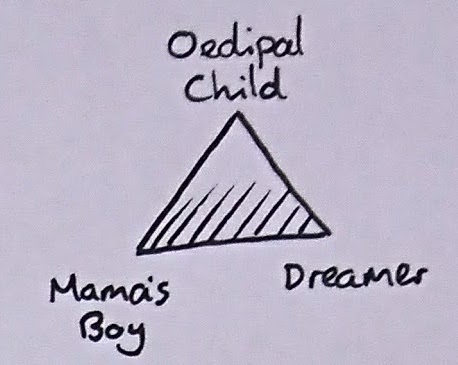 Oedipal
Child
Mama's
Boy
Dreamer